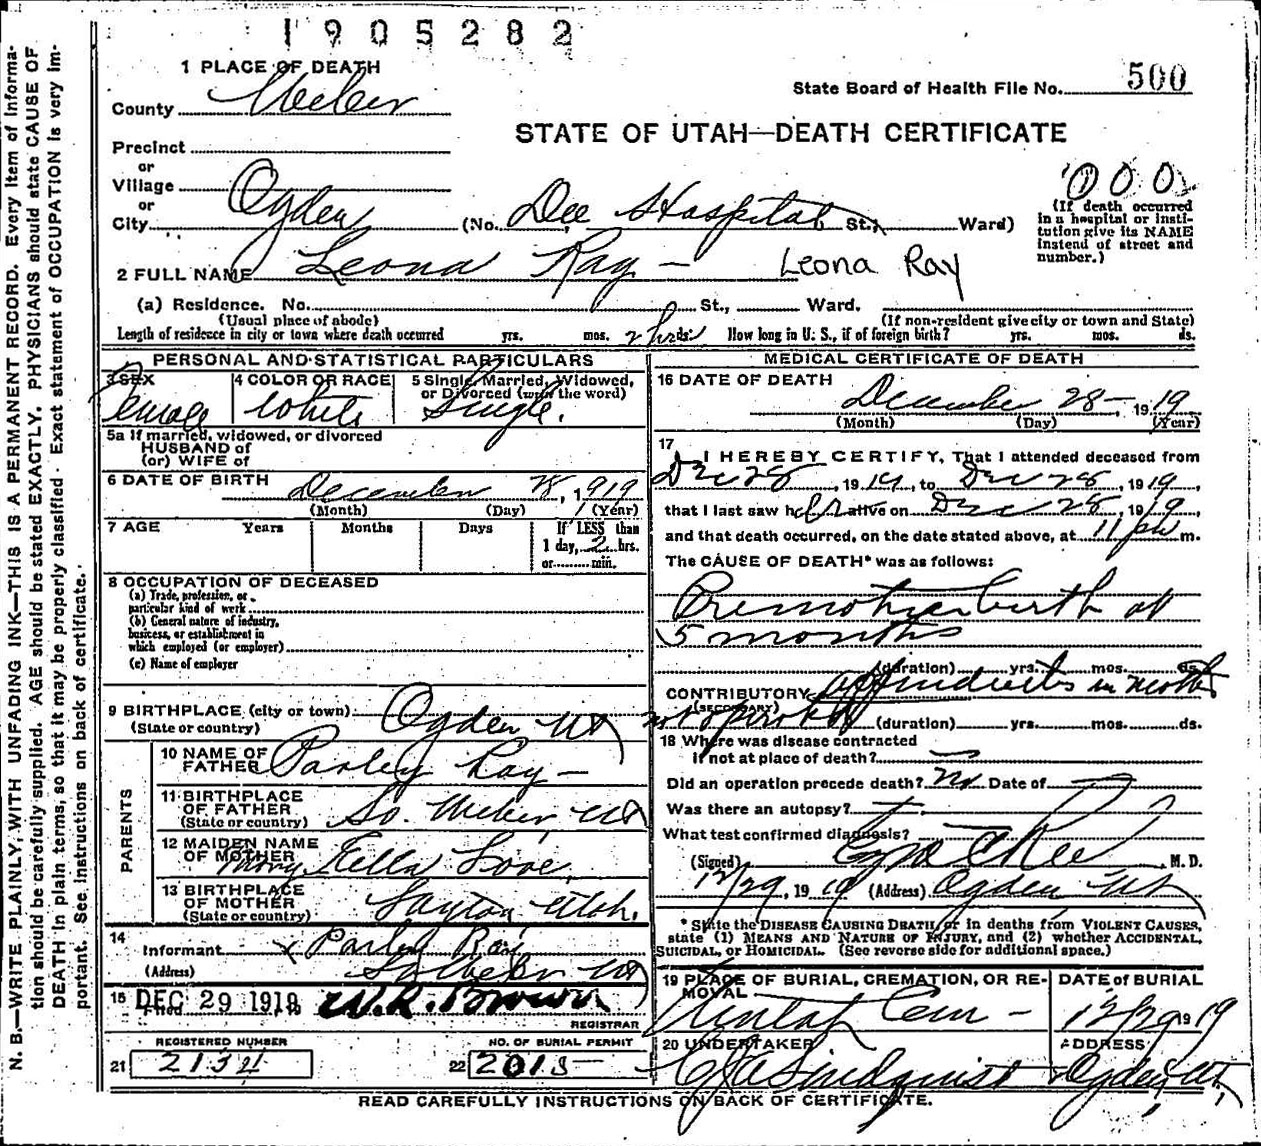 1905282
1 PLACE OF DEATH
County Weber
State Board of Health File No. 500
STATE OF UTAH—DEATH CERTIFICATE
Precinct
or
Village
or
City Ogden (No. Dee Hospital St.; Ward)
000
(If death occurred
in a hospital or insti-
tution give its NAME
instead of street and
number.)
2 FULL NAME Leona Ray — Leona Ray
(a) Residence. No. St., Ward.
(Usual place of abode) (If non-resident give city or town and State)
Length of residence in city or town where death occurred yrs. mos. 2 hrs ds. How long in U. S., if of foreign birth? yrs. mos. ds.
PERSONAL AND STATISTICAL PARTICULARS
3 SEX 4 COLOR OR RACE 5 Single, Married, Widowed,
or Divorced (write the word)
Female White Single.
5a If married, widowed, or divorced
HUSBAND of
(or) WIFE of
6 DATE OF BIRTH December 28, 1919
(Month) (Day) (Year)
7 AGE Years Months Days If LESS than
1 day, 2 hrs.
or min.
8 OCCUPATION OF DECEASED
(a) Trade, profession, or
particular kind of work
(b) General nature of industry,
business, or establishment in
which employed (or employer)
(c) Name of employer
9 BIRTHPLACE (city or town) Ogden Ut
(State or country)
PARENTS
10 NAME OF
FATHER Parley Ray —
11 BIRTHPLACE
OF FATHER
(State or country) So. Weber, Ut
12 MAIDEN NAME
OF MOTHER Mary Ella Love,
13 BIRTHPLACE
OF MOTHER
(State or country) Layton Utah.
14
Informant x Parley Ray
(Address) So Weber Ut
15 Filed DEC 29 1919 W.R. Brown
REGISTRAR
REGISTERED NUMBER NO. OF BURIAL PERMIT
21 22 2015
MEDICAL CERTIFICATE OF DEATH
16 DATE OF DEATH
December 28 — 1919
(Month) (Day) (Year)
17
I HEREBY CERTIFY, That I attended deceased from
Dec 28, 1919, to Dec 28, 1919,
that I last saw her alive on Dec 28, 1919,
and that death occurred, on the date stated above, at 11 pm m.
The CAUSE OF DEATH* was as follows:
Premature birth at
5 months
(duration) yrs. mos. ds.
CONTRIBUTORY appendicitis in mother
(SECONDARY)
not operated (duration) yrs. mos. ds.
18 Where was disease contracted
if not at place of death?
Did an operation precede death? No Date of
Was there an autopsy?
What test confirmed diagnosis?
(Signed) M. D.
12/29, 1919 (Address) Ogden Ut
* State the DISEASE CAUSING DEATH, or in deaths from VIOLENT CAUSES,
state (1) MEANS AND NATURE OF INJURY, and (2) whether ACCIDENTAL,
SUICIDAL, or HOMICIDAL. (See reverse side for additional space.)
19 PLACE OF BURIAL, CREMATION, OR RE-
MOVAL DATE OF BURIAL
Uintah Cem — 12/29 1919
20 UNDERTAKER ADDRESS
Lindquist Ogden, Ut,
READ CAREFULLY INSTRUCTIONS ON BACK OF CERTIFICATE.
N. B.—WRITE PLAINLY, WITH UNFADING INK—THIS IS A PERMANENT RECORD. Every item of informa-
tion should be carefully supplied. AGE should be stated EXACTLY. PHYSICIANS should state CAUSE OF
DEATH in plain terms, so that it may be properly classified. Exact statement of OCCUPATION is very im-
portant. See instructions on back of certificate.